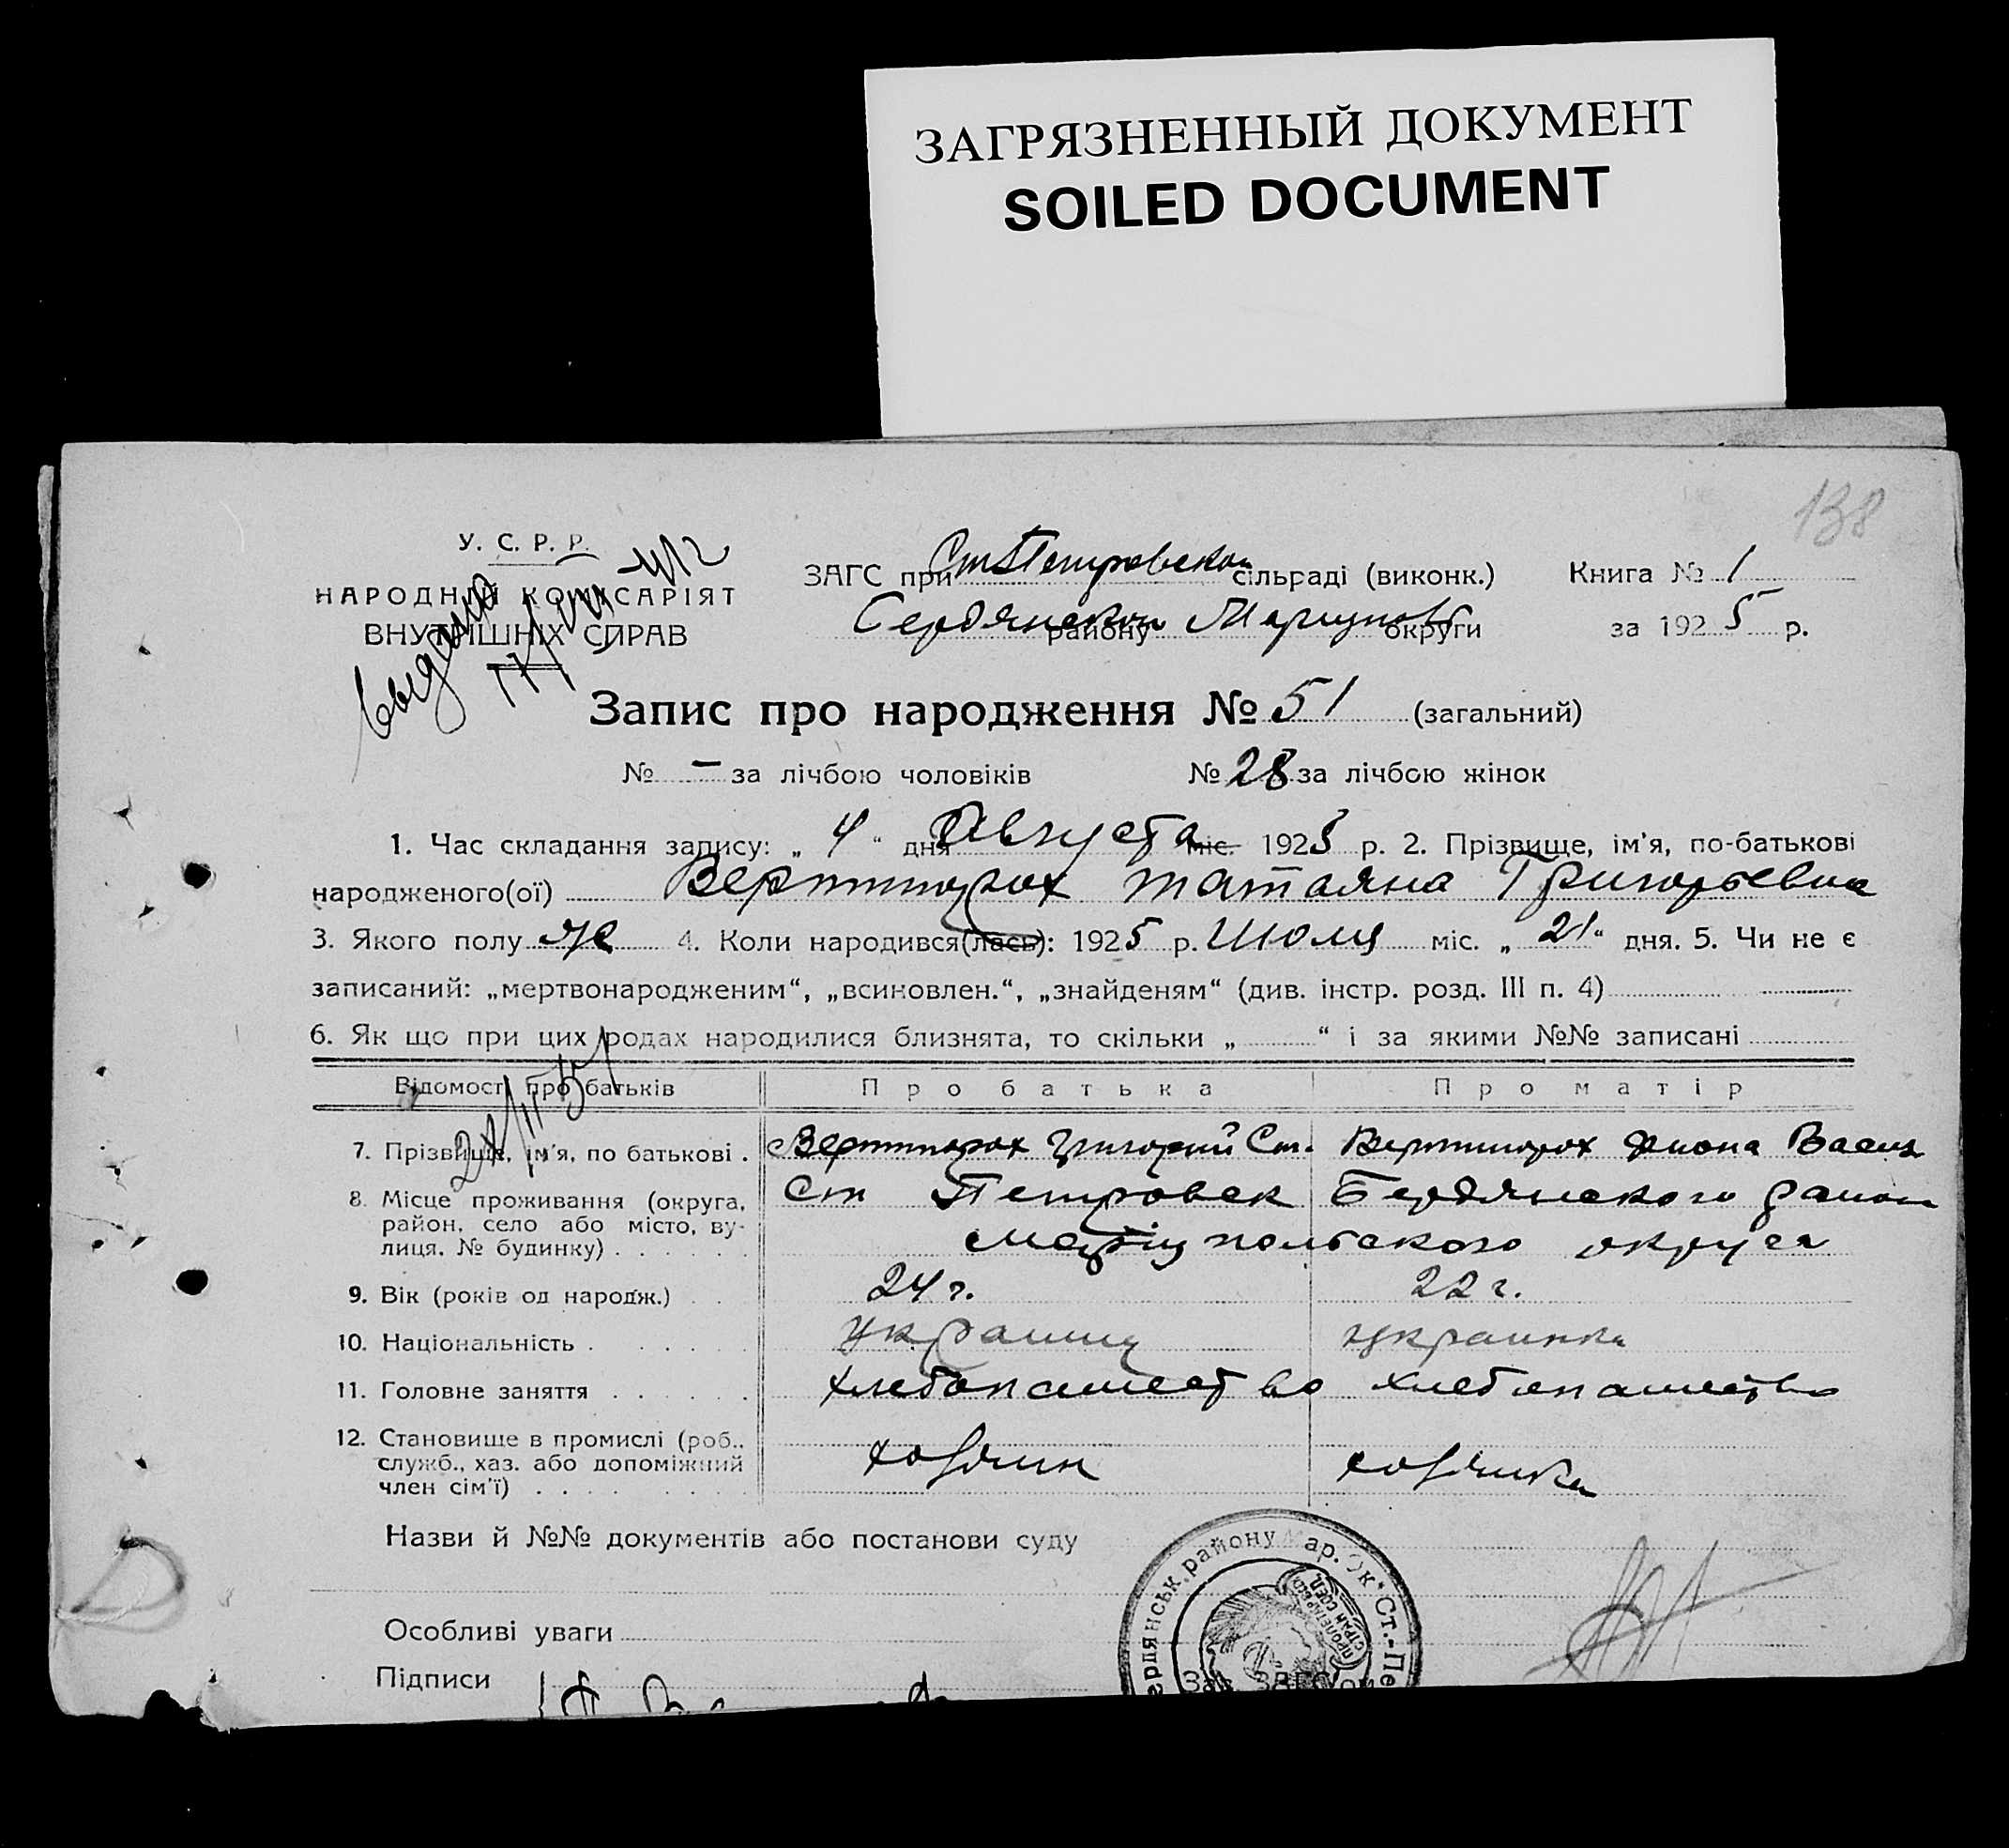 ЗАГРЯЗНЕННЫЙ ДОКУМЕНТ
SOILED DOCUMENT
138
У. С. Р. Р.
НАРОДНІЙ КОМІСАРІЯТ
ВНУТРІШНІХ СПРАВ
выдано
ЗАГС при Ст Петровской сільраді (виконк.) Книга № 1
Бердянском району Мариупол округи за 1925 р.
Запис про народження № 51 (загальний)
№ – за лічбою чоловіків № 28 за лічбою жінок
1. Час складання запису: „ 4 " дня Августа міс. 1925 р. 2. Прізвище, ім'я, по-батькові
народженого(ої) Вертипорох Татаяна Григорьевна
3. Якого полу же 4. Коли народився(лась): 1925 р. Июля міс. „ 21 " дня. 5. Чи не є
записаний: „мертвонародженим“, „всиновлен.“, „знайденям“ (див. інстр. розд. III п. 4)
6. Як що при цих родах народилися близнята, то скільки „ “ і за якими №№ записані
Відомості про батьків Про батька Про матір
7. Прізвище, ім'я, по батькові . Вертипорох Григорий Ст. Вертипорох Васил
8. Місце проживання (округа, район, село або місто, вулиця, № будинку) Ст Петровск Бердянского район
Мариупольского округа
9. Вік (років од народж.) 24 г. 22 г.
10. Національність украинц украинка
11. Головне заняття хлебопашество хлебопашество
12. Становище в промислі (роб., служб., хаз. або допоміжний член сім'ї) хозяин хозяйка
Назви й №№ документів або постанови суду
Особливі уваги
Підписи
ердянськ. району Мар. Ок. Ст.-Пе
ПРОЛЕТАРІ ВСІХ
Зав. ЗАГСом